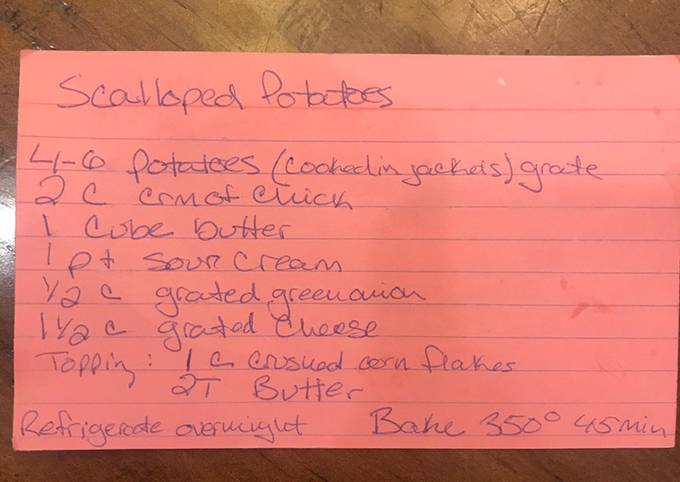 Scalloped Potatoes
4-6 potatoes (cooked in jackets) grate
2 C crm of chick
1 cube butter
1 pt sour cream
1/2 c grated green onion
1 1/2 c grated cheese
Topping: 1 c crushed corn flakes
2T Butter
Refrigerate overnight Bake 350° 45 min